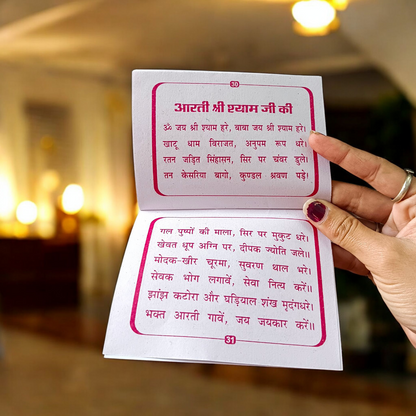 30
आरती श्री श्याम जी की
ॐ जय श्री श्याम हरे, बाबा जय श्री श्याम हरे।
खाटू धाम विराजत, अनुपम रूप धरे।
रतन जड़ित सिंहासन, सिर पर चंवर डुले।
तन केसरिया बागो, कुण्डल श्रवण पड़े।
गल पुष्पों की माला, सिर पर मुकुट धरे।
खेवत धूप अग्नि पर, दीपक ज्योति जले।।
मोदक-खीर चूरमा, सुवरण थाल भरे।
सेवक भोग लगावें, सेवा नित्य करें।।
झांझर कटोरा और घड़ियाल शंख मृदंगधरे।
भक्त आरती गावें, जय जयकार करें।।
31